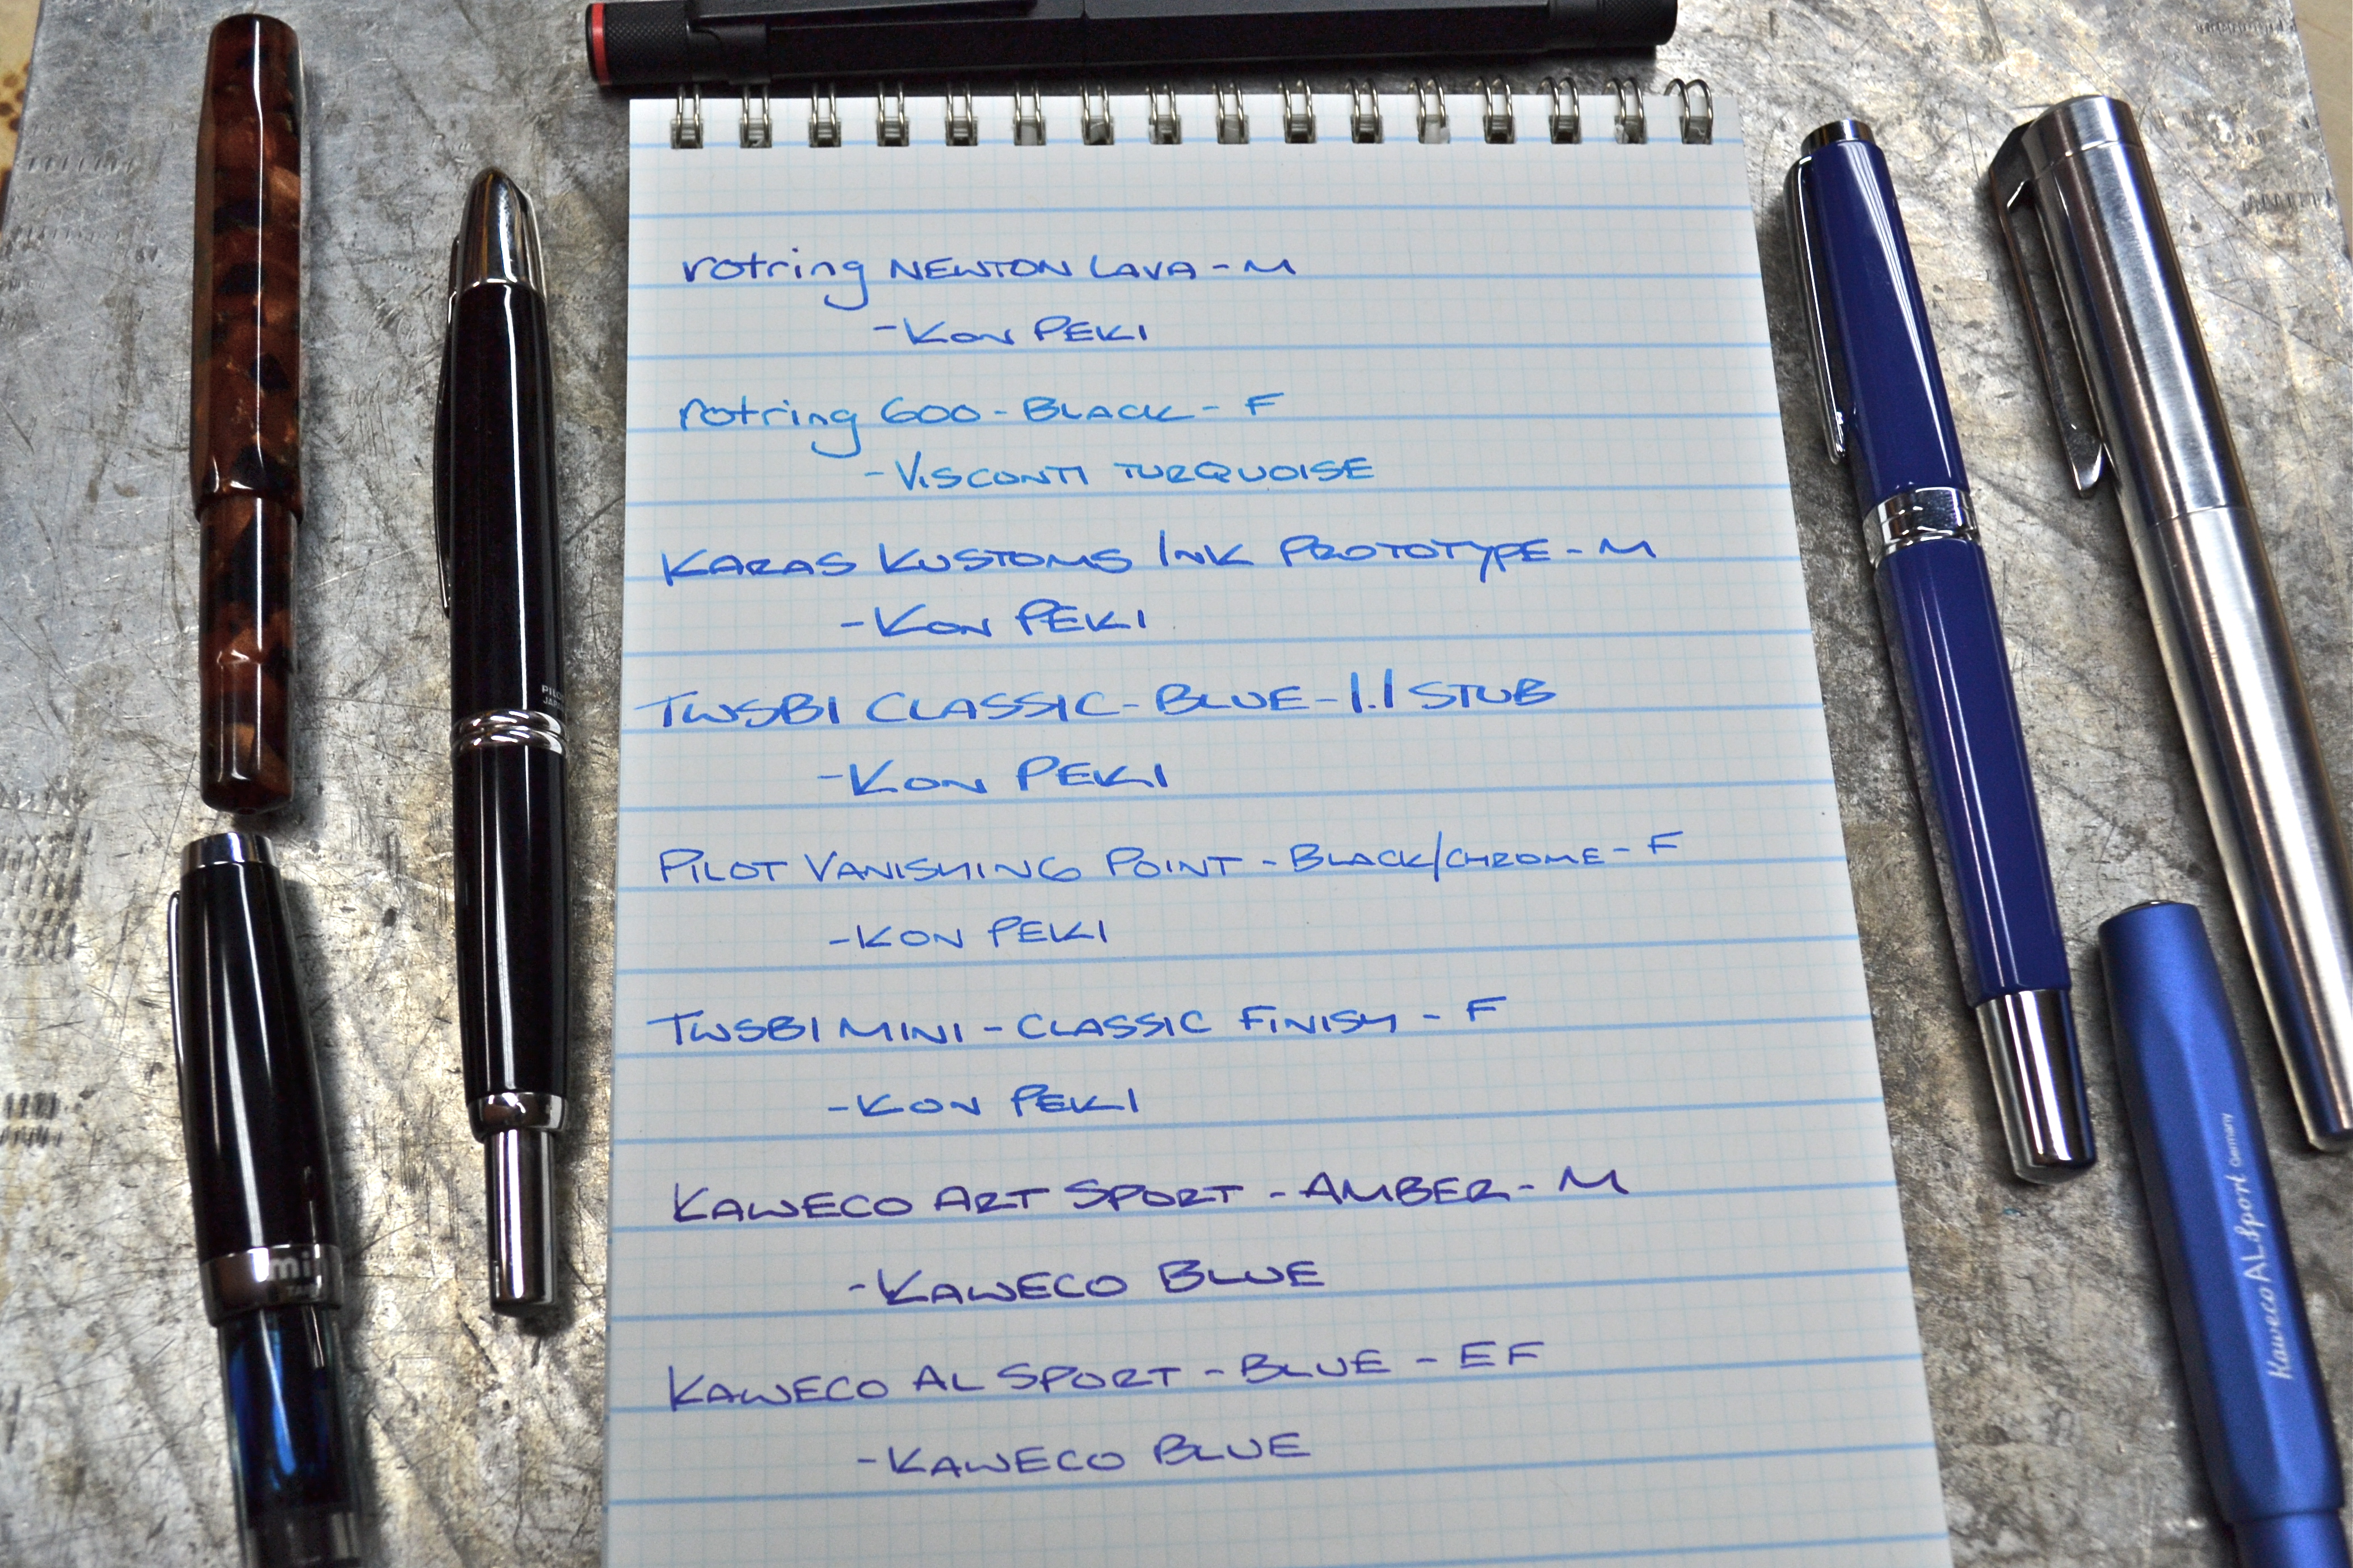 rotring NEWTON LAVA - M
- KON PEKI
rotring 600 - BLACK - F
- VISCONTI TURQUOISE
KARAS KUSTOMS INK PROTOTYPE - M
- KON PEKI
TWSBI CLASSIC - BLUE - 1.1 STUB
- KON PEKI
PILOT VANISHING POINT - BLACK/CHROME - F
- KON PEKI
TWSBI MINI - CLASSIC FINISH - F
- KON PEKI
KAWECO ART SPORT - AMBER - M
- KAWECO BLUE
KAWECO AL SPORT - BLUE - EF
- KAWECO BLUE
Kaweco AL Sport Germany